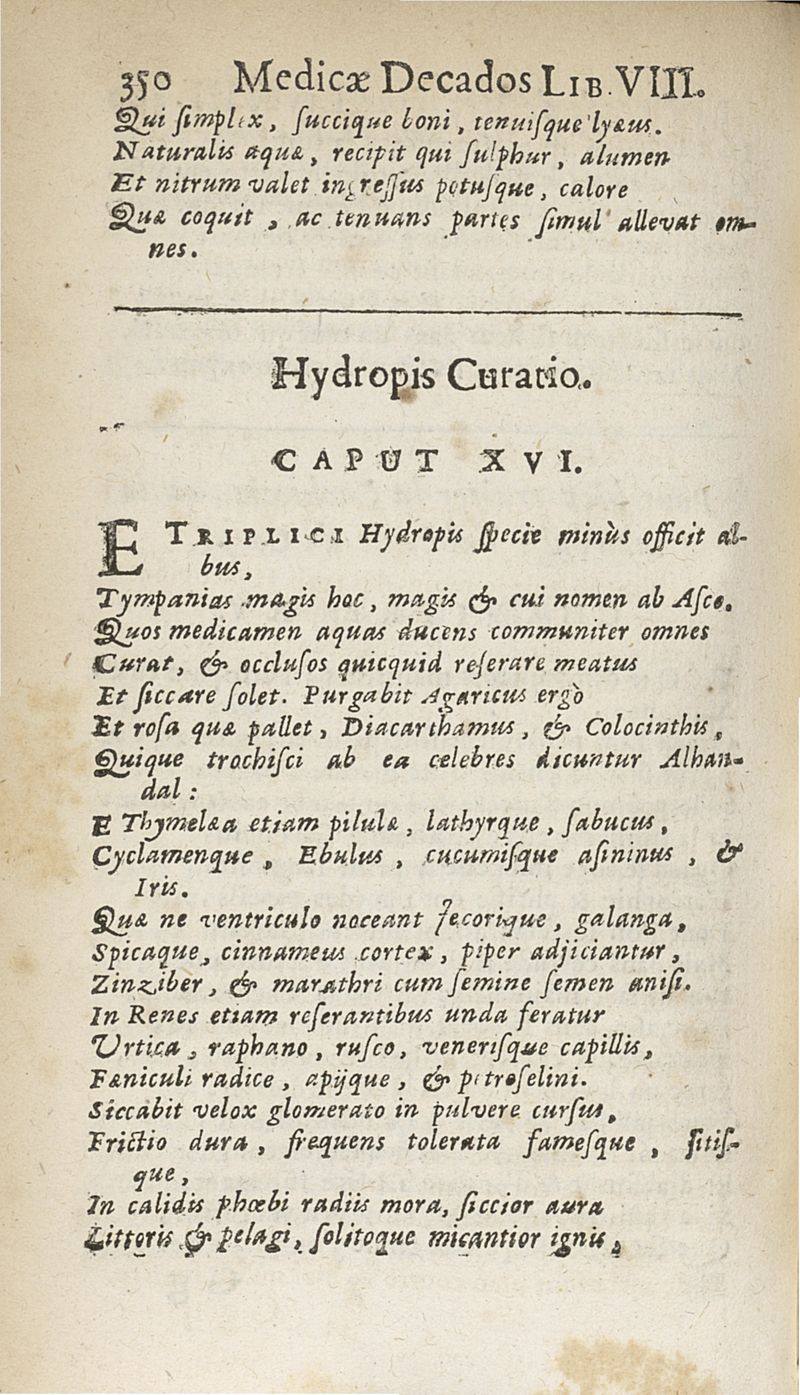 350 Medicæ Decados LIB. VIII.
Qui ſimplex, ſuccique boni, tenuiſque lyæus.
Naturalis aquæ, recipit qui ſulphur, alumen
Et nitrum valet ingreſſus potuſque, calore
Quæ coquit, ac tenuans partes ſimul allevat om-
nes.
Hydropis Curatio.
CAPUT XVI.
E TRIPLICI Hydropis ſpecie minùs officit al-
bus,
Tympanias magis hoc, magis & cui nomen ab Aſce.
Quos medicamen aquas ducens communiter omnes
Curat, & occluſos quicquid reſerare meatus
Et ſiccare ſolet. Purgabit Agaricus ergò
Et roſa quæ pallet, Diacarthamus, & Colocinthis,
Quique trochiſci ab ea celebres dicuntur Alhan-
dal:
E Thymelæa etiam pilulæ, lathyrque, ſabucus,
Cyclamenque, Ebulus, cucumiſque aſininus, &
Iris.
Quæ ne ventriculo noceant Jecorique, galanga,
Spicaque, cinnameus cortex, piper adjiciantur,
Zinziber, & marathri cum ſemine ſemen aniſi.
In Renes etiam reſerantibus unda feratur
Urtica, raphano, ruſco, veneriſque capillis,
Fæniculi radice, apijque, & petroſelini.
Siccabit velox glomerato in pulvere curſus,
Frictio dura, frequens tolerata fameſque, ſitiſ-
que,
In calidis phœbi radiis mora, ſiccior aura
Littoris & pelagi, ſolitoque micantior ignis,